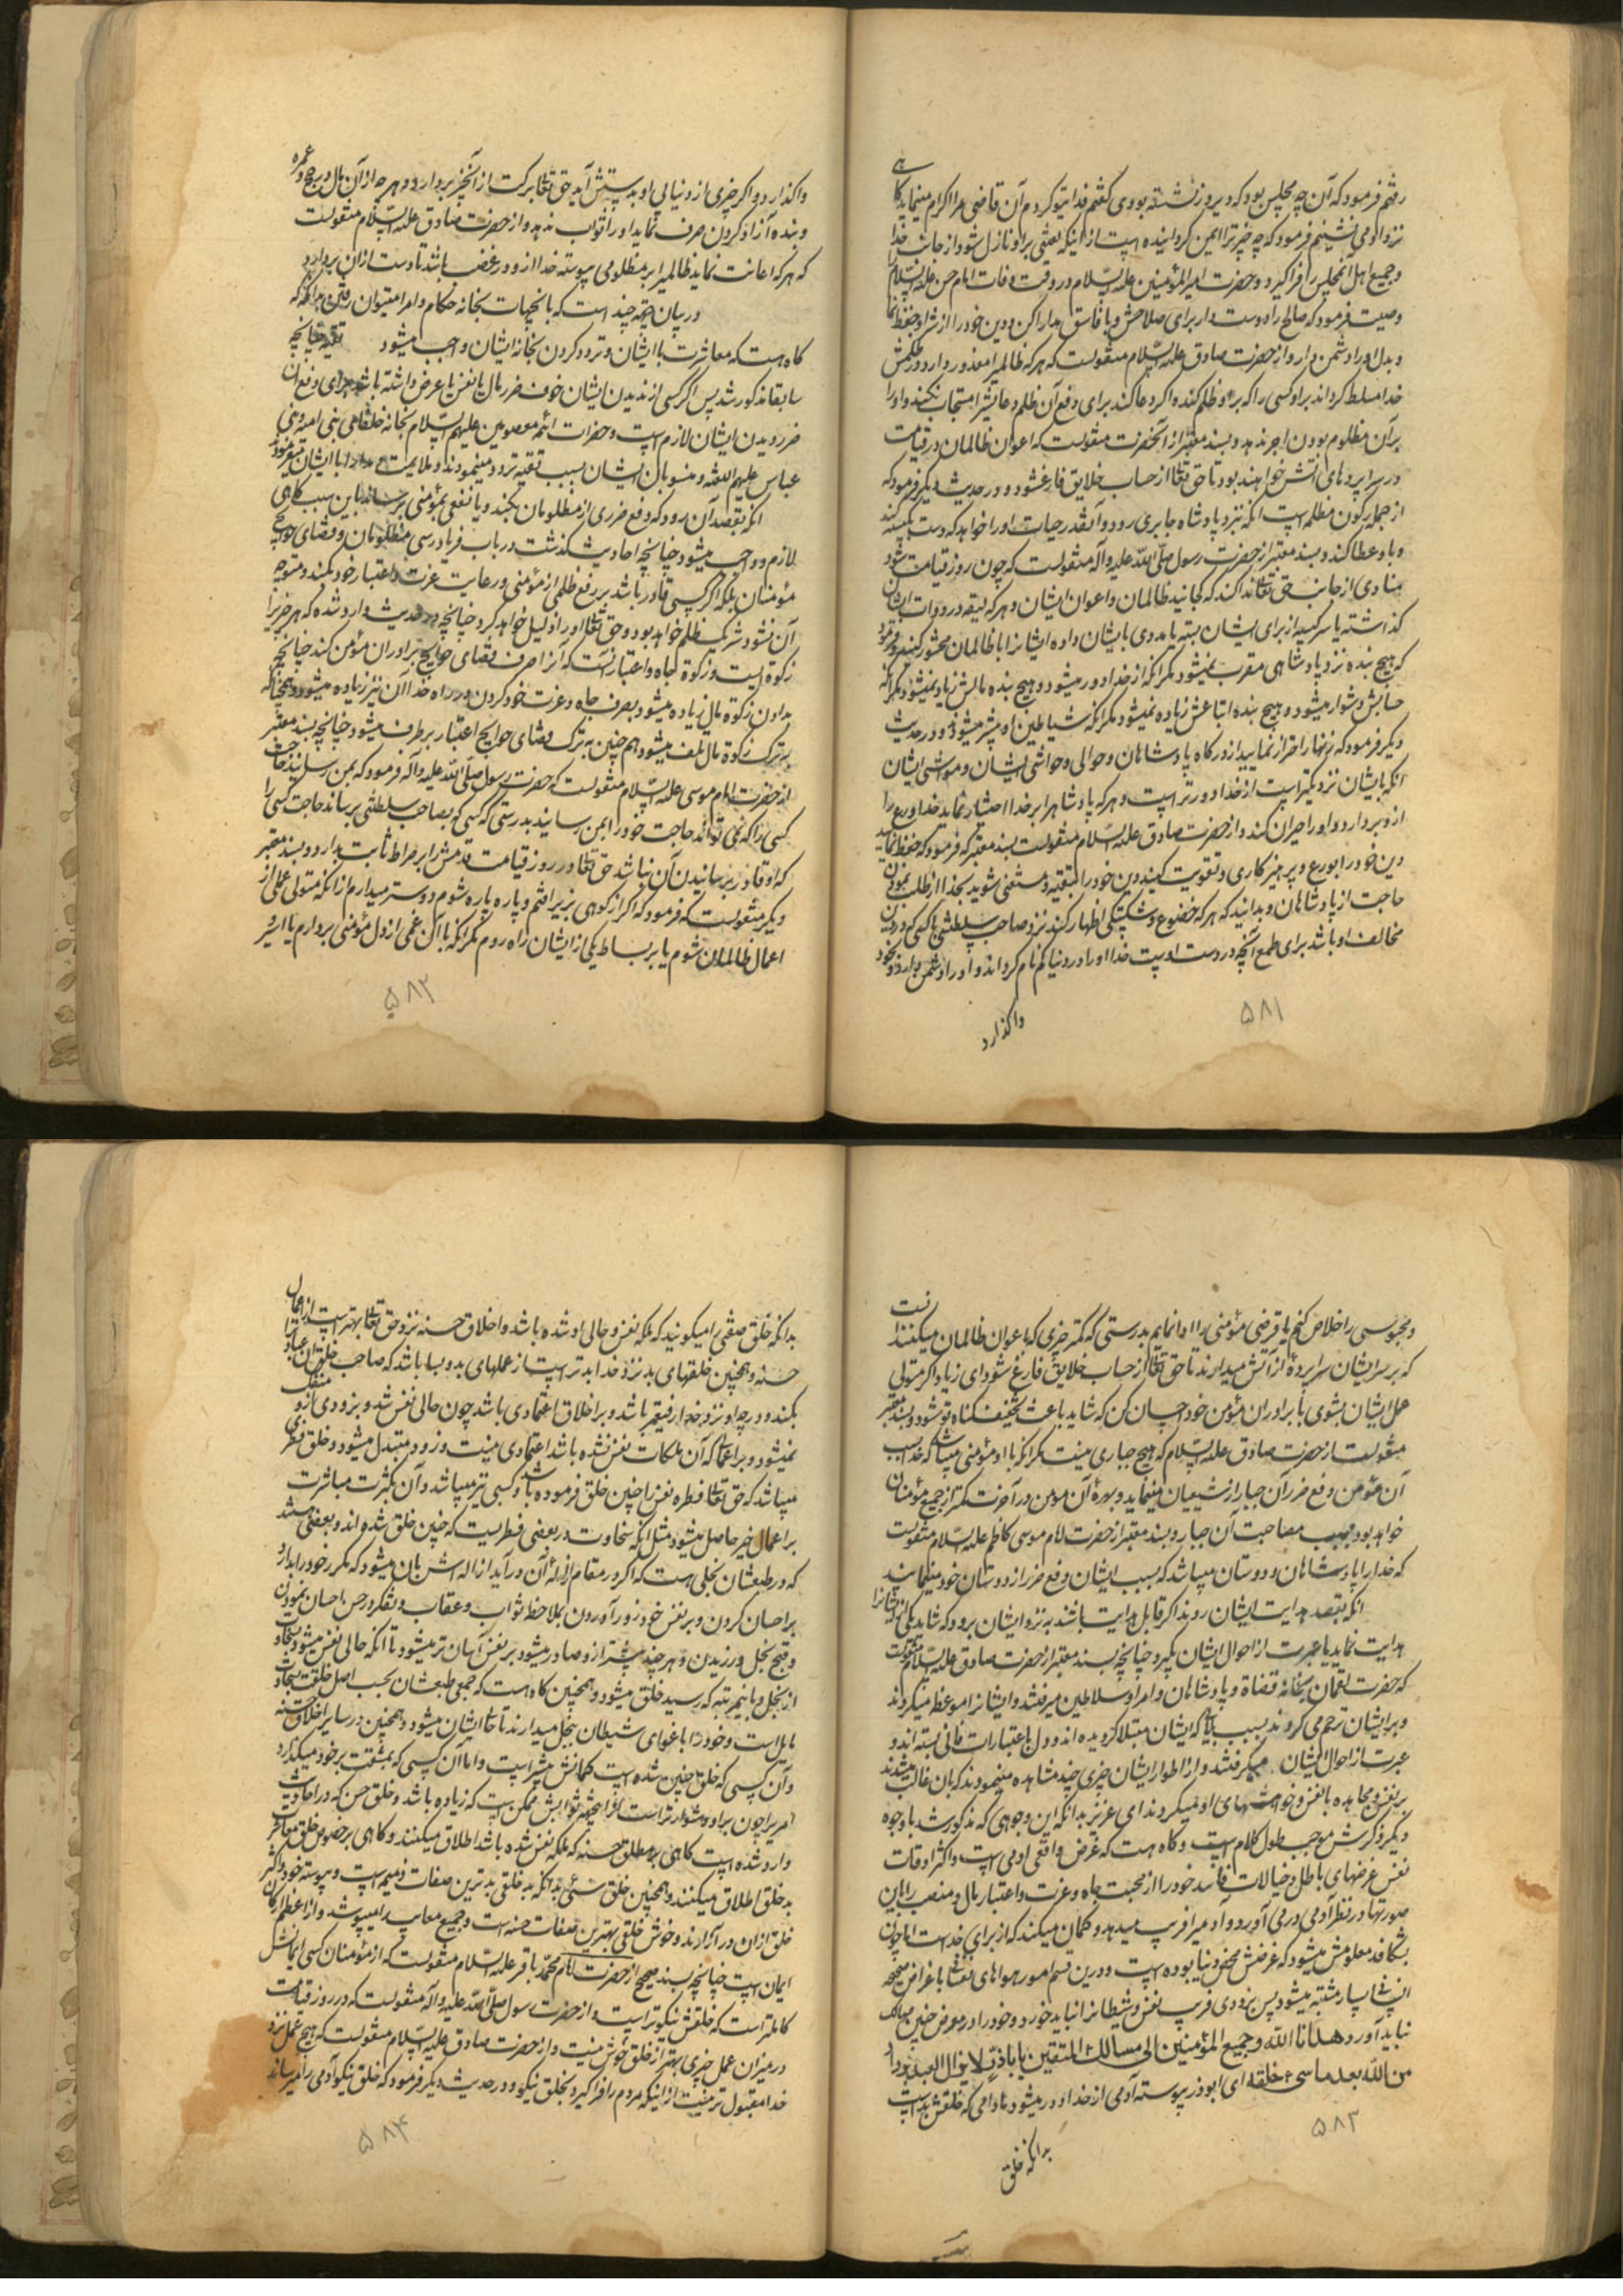 رفتم فرمود که آن چه مجلس بود که دیروز نشسته بودی گفتم فدای تو گردم آن قاضی مرا اکرام مینماید گاهی
نزد او می نشینم فرمود که چه چیز ترا ایمن گردانیده است از اینکه لعنتی بر او نازل شود از جانب خدا
و جمیع اهل آن مجلس را فرا گیرد و حضرت امیر المؤمنین علیه السّلام در وقت وفات امام حسن علیه السّلام
وصیت فرمود که صالح را دوست دار برای صلاحش و با فاسق مدارا کن و دین خود را از شر او حفظ نما
و بدل او را دشمن دار و از حضرت صادق علیه السّلام منقولست که هر که ظالمیرا معذور دارد در ظلمش
خدا مسلط گرداند بر او کسی را که بر او ظلم کند و اگر دعا کند برای دفع آن ظلم دعایش را مستجاب نکند و او را
بر آن مظلوم بودن اجر ندهد و بسند معتبر از آنحضرت منقولست که اعوان ظالمان در قیامت
در سراپرده‌های آتش خواهند بود تا حق تعالی از حساب خلایق فارغ شود و در حدیث دیگر فرمود که
از جمله رکون مظلمه است آنکه نزد پادشاه جابری رود و آنقدر حیات او را خواهد که دست بکیسه کند
و باو عطا کند و بسند معتبر از حضرت رسول صلّی اللّه علیه و آله منقولست که چون روز قیامت شود
منادی از جانب حق تعالی ندا کند که کجایند ظالمان و اعوان ایشان و هر که لیقه در دوات ایشان
گذاشته یا سر کیسه از برای ایشان بسته یا مددی بایشان داده ایشانرا با ظالمان محشور کنید و فرمود
که هیچ بنده نزد پادشاهی مقرب نمیشود مگر آنکه از خدا دور میشود و هیچ بنده مالش زیاد نمیشود مگر آنکه
حسابش دشوار میشود و هیچ بنده اتباعش زیاده نمیشود مگر آنکه شیاطین او بیشتر میشود و در حدیث
دیگر فرمود که زنهار احتراز نمایید از درگاه پادشاهان و حوالی و حواشی ایشان و مواشی ایشان
آنکه بایشان نزدیکتر است از خدا دورتر است و هر که پادشاهرا بر خدا اختیار نماید خدا ورع را
از او بردارد و او را حیران کند و از حضرت صادق علیه السّلام منقولست بسند معتبر که فرمود که حفظ نمائید
دین خود را بورع و پرهیزکاری و تقویت کنید دین خود را بتقیه و مستغنی شوید بخدا از طلب نمودن
حاجت از پادشاهان و بدانید که هر که خضوع و شکستگی اظهار کند نزد صاحب سلطنتی یا کسی که در دین
مخالف او باشد برای طمع آنچه در دست اوست خدا او را در دنیا گم نام گرداند و او را دشمن دارد و بخود
واگذارد
۵۸۱
واگذارد و اگر چیزی از دنیای او بدستش آید حق تعالی برکت از آنچیز بردارد و هر چه از آن مال در حج و عمره
و بنده آزاد کردن صرف نماید او را ثواب ندهد و از حضرت صادق علیه السّلام منقولست
که هر که اعانت نماید ظالمیرا بر مظلومی پیوسته خدا از او در غضب باشد تا دست از آن بردارد
در بیان جهتی چند است که بآنجهات بخانه حکام و امرا میتوان رفتن بدانکه
گاه هست که معاشرت با ایشان و تردد کردن بخانه ایشان واجب میشود تقیه چنانچه
سابقا مذکور شد پس اگر کسی از ندیدن ایشان خوف ضرر مال یا نفس یا عرض داشته باشد برای دفع آن
ضرر دیدن ایشان لازم است و حضرات ائمه معصومین علیهم السّلام بخانه خلفای بنی امیه و بنی
عباس علیهم اللعنه و منسوبان ایشان بسبب تقیه تردد مینمودند و ملایمت و مدارا با ایشان میفرمودند
آنکه بقصد آن رود که دفع ضرری از مظلومان بکند و یا نفعی بمؤمنی برساند باین سبب گاهی
لازم و واجب میشود چنانچه احادیث گذشت در باب فریادرسی مظلومان و قضای حوائج
مؤمنان بلکه اگر کسی قادر باشد بر رفع ظلمی از مؤمنی و رعایت عزت و اعتبار خود بکند و متوجه
آن نشود شریک ظلم خواهد بود و حق تعالی او را ذلیل خواهد کرد چنانچه در حدیث وارد شده که هر چیزیرا
زکوة ایست و زکوة جاه و اعتبار آنست که آنرا صرف قضای حوایج برادران مؤمن کند چنانچه
بدادن زکوة مال زیاده میشود بصرف جاه و عزت خود کردن در راه خدا آن نیز زیاده میشود و همچنانکه
بترک زکوة مال تلف میشود هم چنین بترک قضای حوایج اعتبار برطرف میشود چنانچه بسند معتبر
از حضرت امام موسی علیه السّلام منقولست که حضرت رسول صلی اللّه علیه و آله فرمود که بمن رسانید حاجت
کسی را که نمی تواند حاجت خود را بمن رسانید بدرستی که کسی که بصاحب سلطنتی برساند حاجت کسی را
که او قادر بر رسانیدن آن نباشد حق تعالی در روز قیامت قدمش را بر صراط ثابت بدارد و بسند معتبر
دیگر منقولست که فرمود که اگر از کوهی بزیر افتم و پاره پاره شوم دوست‌تر میدارم از آنکه متولی عملی از
اعمال ظالمان شوم یا بر بساط یکی از ایشان راه روم مگر آنکه با آن غمی از دل مؤمنی بردارم یا اسیر
۵۸۲
و محبوسی را خلاص کنم یا قرض مؤمنی را ادا نمایم بدرستی که کمتر چیزی که با عوان ظالمان میکنند آنست
که بر سر ایشان سراپردهٔ از آتش میدارند تا حق تعالی از حساب خلایق فارغ شود ای زیاد اگر متولی
عمل ایشان بشوی با برادران مؤمن خود احسان کن که شاید باعث تخفیف گناه تو شود و بسند معتبر
منقولست از حضرت صادق علیه السّلام که هیچ جباری نیست مگر آنکه با او مؤمنی میباشد که خدا بسبب
آن مؤمن دفع ضرر آن جبار از شیعیان مینماید و بهرهٔ آن مومن در آخرت کمتر از جمیع مؤمنان
خواهد بود بسبب مصاحبت آن جبار و بسند معتبر از حضرت امام موسی کاظم علیه السّلام منقولست
که خدا را با پادشاهان دوستان میباشد که بسبب ایشان دفع ضرر از دوستان خود مینماید
آنکه بقصد هدایت ایشان روند اگر قابل هدایت باشند به نزد ایشان برود که شاید یکی از ایشانرا
هدایت نماید یا عبرت از احوال ایشان بگیرد چنانچه بسند معتبر از حضرت صادق علیه السّلام منقولست
که حضرت لقمان بخانه قضاة و پادشاهان و امرا و سلاطین میرفتند و ایشانرا موعظه میکردند
و بر ایشان ترحم می کردند بسبب که ایشان مبتلا گردیده اند و دل باعتبارات فانی بسته اند و
عبرت از احوال ایشان میگرفتند و از اطوار ایشان چیزی چند مشاهده مینمودند که بآن غالب میشدند
بر نفس و مجاهده با نفس و خواهشهای او میکردند ای عزیز بدانکه این وجوهی که مذکور شد با وجوه
دیگر که ذکرش موجب طول کلام است و گاه هست که غرض واقعی آدمی است و اکثر اوقات
نفس غرضهای باطل و خیالات فاسد خود را از محبت جاه و عزت و اعتبار مال و منصب را باین
صورتها در نظر آدمی در می آورد و آدمیرا فریب میدهد و گمان میکند که از برای خداست اما چون
بشکافد معلومش میشود که غرضش محض دنیا بوده است و درین قسم امور هواهای نفسانی باغراض صحیحه
انسانی بسیار مشتبه میشود پس بزودی فریب نفس و شیطانرا نباید خورد و خود را در معرض چنین مهالک
نباید آورد هدانا اللّه و جمیع المؤمنین الی مسالک المتقین یا باذر لا یزال العبد یزداد
من اللّه بعدا ما سیئ خلقه ای ابوذر پیوسته آدمی از خدا دور میشود مادامی که خلقش بد است
بدانکه خلق
۵۸۳
بدانکه خلق صفتی را میگویند که ملکه نفس و حالی او شده باشد و اخلاق حسنه نزد حق تعالی بهتر است از اعمال
حسنه و همچنین خلقهای بد نزد خدا بدتر است از عملهای بد و بسا باشد که صاحب خلق آن عبادترا
نکند و درجه او نزد خدا رفیعتر باشد و بر اخلاق اعتمادی باشد چون حالی نفس شد و بزودی از او منفک
نمیشود و بر اعمال که آن ملکات نفس نشده باشد اعتمادی نیست و زود متبدل میشود و خلق فطری
میباشد که حق تعالی فطره نفس را چنین خلق فرموده باشد و کسبی نیز میباشد و آن بکثرت مباشرت
بر اعمال خیر حاصل میشود مثل آنکه سخاوت در بعضی فطریست که چنین خلق شده اند و بعضی هستند
که در طبعشان بخلی هست که اگر در مقام ازاله آن در آید ازاله‌اش بآن میشود که مکرر خود را بدارد
بر احسان کردن و بر نفس خود زور آوردن بملاحظه ثواب و عقاب و تفکر در حسن احسان نمودن
و قبح بخل ورزیدن و هر چند بیشتر از او صادر میشود بر نفس آسان تر میشود تا آنکه حالی نفس میشود بسخاوت
از بخل و باینمرتبه که رسید خلق میشود و همچنین گاه هست که جمعی طبعشان بحسب اصل خلقت بسخاوت
مایل است و خود را باغوای شیطان ببخل میدارند تا حالی ایشان میشود و همچنین در سایر اخلاق حسنه
و آن کسی که خلق چنین شده است کمالش بیشتر است و اما آن کسی که بمشقت بر خود میگذارد
امریرا چون بر او دشوارتر است ازینجهت ثوابش ممکن است که زیاده باشد و خلق حسن که در احادیث
وارد شده است گاهی بر مطلق حسنه که ملکه نفس شده باشد اطلاق میکنند و گاهی بر خصوص خلق معاشرت
بد خلق اطلاق میکنند و همچنین خلق سیّئ بدانکه بد خلقی بدترین صفات ذمیمه است و پیوسته خود و اکثر
خلق از آن در آزارند و خوش خلقی بهترین صفات حسنه است و جمیع معایب را میپوشد و از اعظم ارکان
ایمان است چنانچه بسند صحیح از حضرت امام محمّد باقر علیه السّلام منقولست که از مؤمنان کسی ایمانش
کاملتر است که خلقش نیکوتر است و از حضرت رسول صلّی اللّه علیه و آله منقولست که در روز قیامت
در میزان عمل چیزی بهتر از خلق خوش نیست و از حضرت صادق علیه السّلام منقولست که هیچ عمل نزد
خدا مقبول تر نیست از اینکه مردم را فراگیرد بخلق نیکو و در حدیث دیگر فرمود که خلق نیکو آدمی را میرساند
۵۸۴